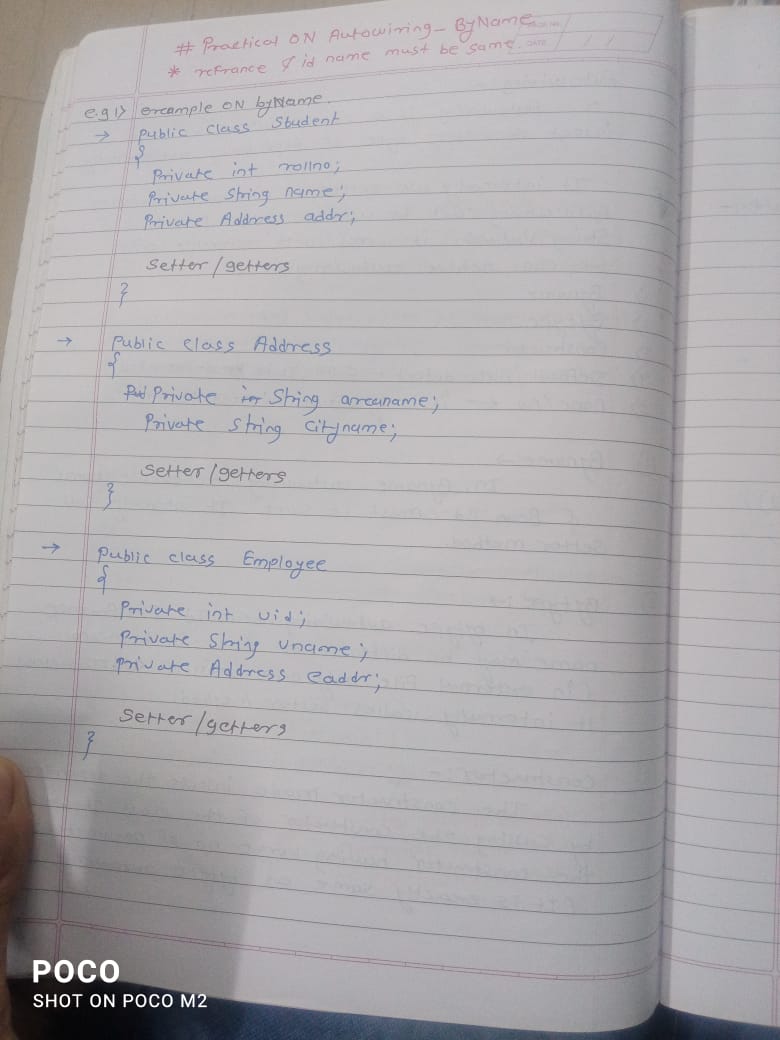 # Practical ON Autowiring - ByName
* refrance & id name must be same.
DATE
e.g 1) example ON byName.
→ public class Student
{
Private int rollno;
Private String name;
Private Address addr;
Setter/getters
}
→ Public class Address
{
Private String areaname;
Private String Cityname;
Setter/getters
}
→ Public class Employee
{
Private int uid;
Private String uname;
Private Address eaddr;
Setter/getters
}
POCO
SHOT ON POCO M2